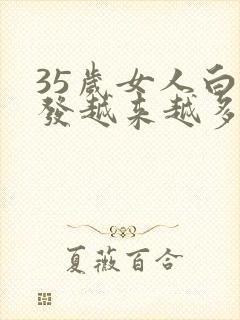 35歲女人白
發越來越多
夏薇百合